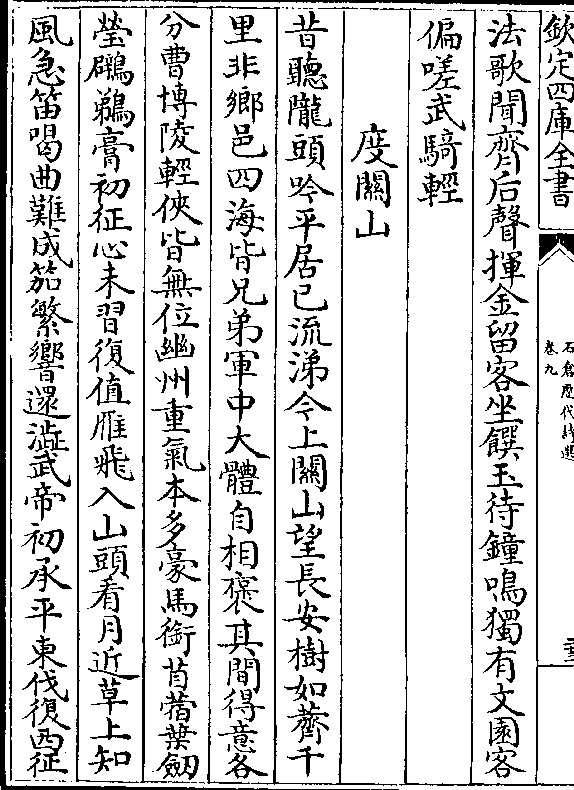 欽定四庫全書
石倉歷代詩選
卷九
三
法歌聞齊后聲揮金留客坐饌玉待鐘鳴獨有文園客
偏嗟武騎輕
度關山
昔聽隴頭吟平居已流涕今上關山望長安樹如薺千
里非鄉邑四海皆兄弟軍中大體自相褒其間得意各
分曹博陵輕俠皆無位幽州重氣本多豪馬銜苜蓿葉劒
瑩鸊鵜膏初征心未習復值雁飛入山頭看月近草上知
風急笛喝曲難成笳繁響還澁武帝初承平東伐復西征